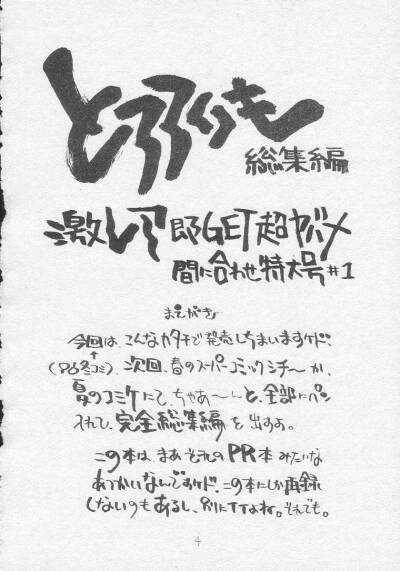 とろろいも
総集編
激レア 即GET 超ヤバメ
間に合わせ特大号#1
まえがき
今回は、こんなカタチで発売しちまいますケド、
(P6冬コミ)、次回、春のスーパーコミックシチーか、
夏のコミケにて、ちゃあ〜んと、全部にペン
入れて、完全総集編を出すよ。
この本は、まあそれのPR本みたいな
あつかいなんですケド、この本にしか再録
しないのもあるし、別にイイよね。それでも。
4